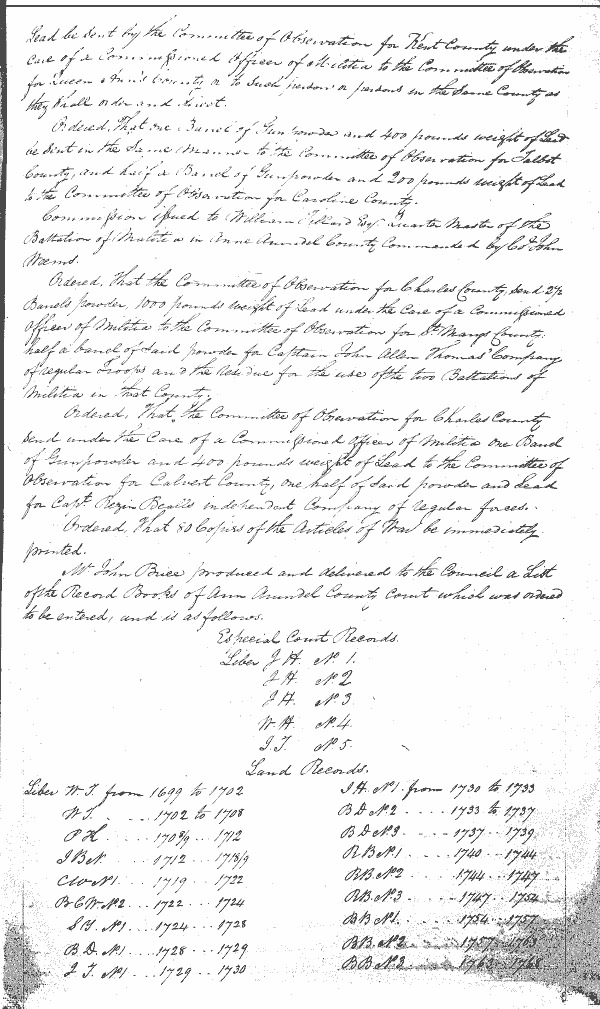 Lead be sent by the Committee of Observation for Kent County under the
care of a Commissioned Officer of Militia to the Committee of Observation
for Queen Ann's County or to such person or persons in the same County as
they shall order and direct.
Ordered, That one Barrel of Gunpowder and 400 pounds weight of Lead
be sent in the same manner to the Committee of Observation for Talbot
County, and half a Barrel of Gunpowder and 200 pounds weight of Lead
to the Committee of Observation for Caroline County.
Commission issued to William Tillard Esqr. Quarter Master of the
Battalion of Militia in Anne Arundel County Commanded by Col John
Weems.
Ordered, That the Committee of Observation for Charles County, send 2½
Barrels powder, 1000 pounds weight of Lead under the Care of a Commissioned
Officer of Militia to the Committee of Observation for St. Marys County:
half a barrel of said powder for Captain John Allen Thomas' Company
of regular Troops and the residue for the use of the two Battalions of
Militia in that County.
Ordered, That the Committee of Observation for Charles County
send under the Care of a Commissioned Officer of Militia one Barrel
of Gunpowder and 400 pounds weight of Lead to the Committee of
Observation for Calvert County, one half of said powder and Lead
for Capt. Rezin Bealls independent Company of regular forces.
Ordered, That 80 Copies of the Articles of War be immediately
printed.
Mr. John Brice produced and delivered to the Council a List
of the Record Books of Ann Arundel County Court which was ordered
to be entered, and is as follows.
Especial Court Records.
Liber J H. No. 1.
J H. No. 2
J H. No. 3
W. H. No. 4
I. T. No. 5.
Land Records.
Liber W. T. from 1699 to 1702
W T. . . . . 1702 to 1708
P H . . . . 1708/9 . . . 1712
I B N. . . . 1712 . . . 1718/9
C W No. 1 . . . 1719 . . . 1722
B C W No. 2 . . . 1722 . . . 1724
S Y. No. 1 . . . 1724 . . . 1728
B. D. No. 1 . . . 1728 . . . 1729
J. T. No. 1 . . . 1729 . . . 1730
I H. No. 1. from 1730 to 1733
B D No. 2 . . . . 1733 to 1737
B D No. 3 . . . . 1737 . . 1739
R B No. 1 . . . . 1740 . . . 1744
R B No. 2 . . . . 1744 . . . 1747
R B No. 3 . . . . 1747 . . . 1754
B B No. 1. . . . . 1754 . . . 1757
B B No. 2 . . . . 1757 . . . 1763
B B No. 3 . . . . 1763 . . . 1768